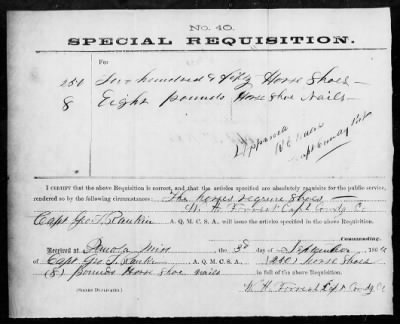 No. 40.
SPECIAL REQUISITION.
For
250 Two hundred & fifty Horse Shoes
8 Eight pounds Horse Shoe Nails
Approved
I CERTIFY that the above Requisition is correct, and that the articles specified are absolutely requisite for the public service,
rendered so by the following circumstances: The horses require Shoes
W. H. Forrest Capt Comdg Co
Commanding.
Capt Geo T. A. Q. M. C. S. A. will issue the articles specified in the above Requisition.
Received at Panola Miss the 3d day of September 186
of Capt Geo T. A. Q. M. C. S. A. (250) horse Shoes
(8) pounds Horse Shoe nails in full of the above Requisition.
(SIGNED DUPLICATES.) W. H. Forrest Capt Comdg Co